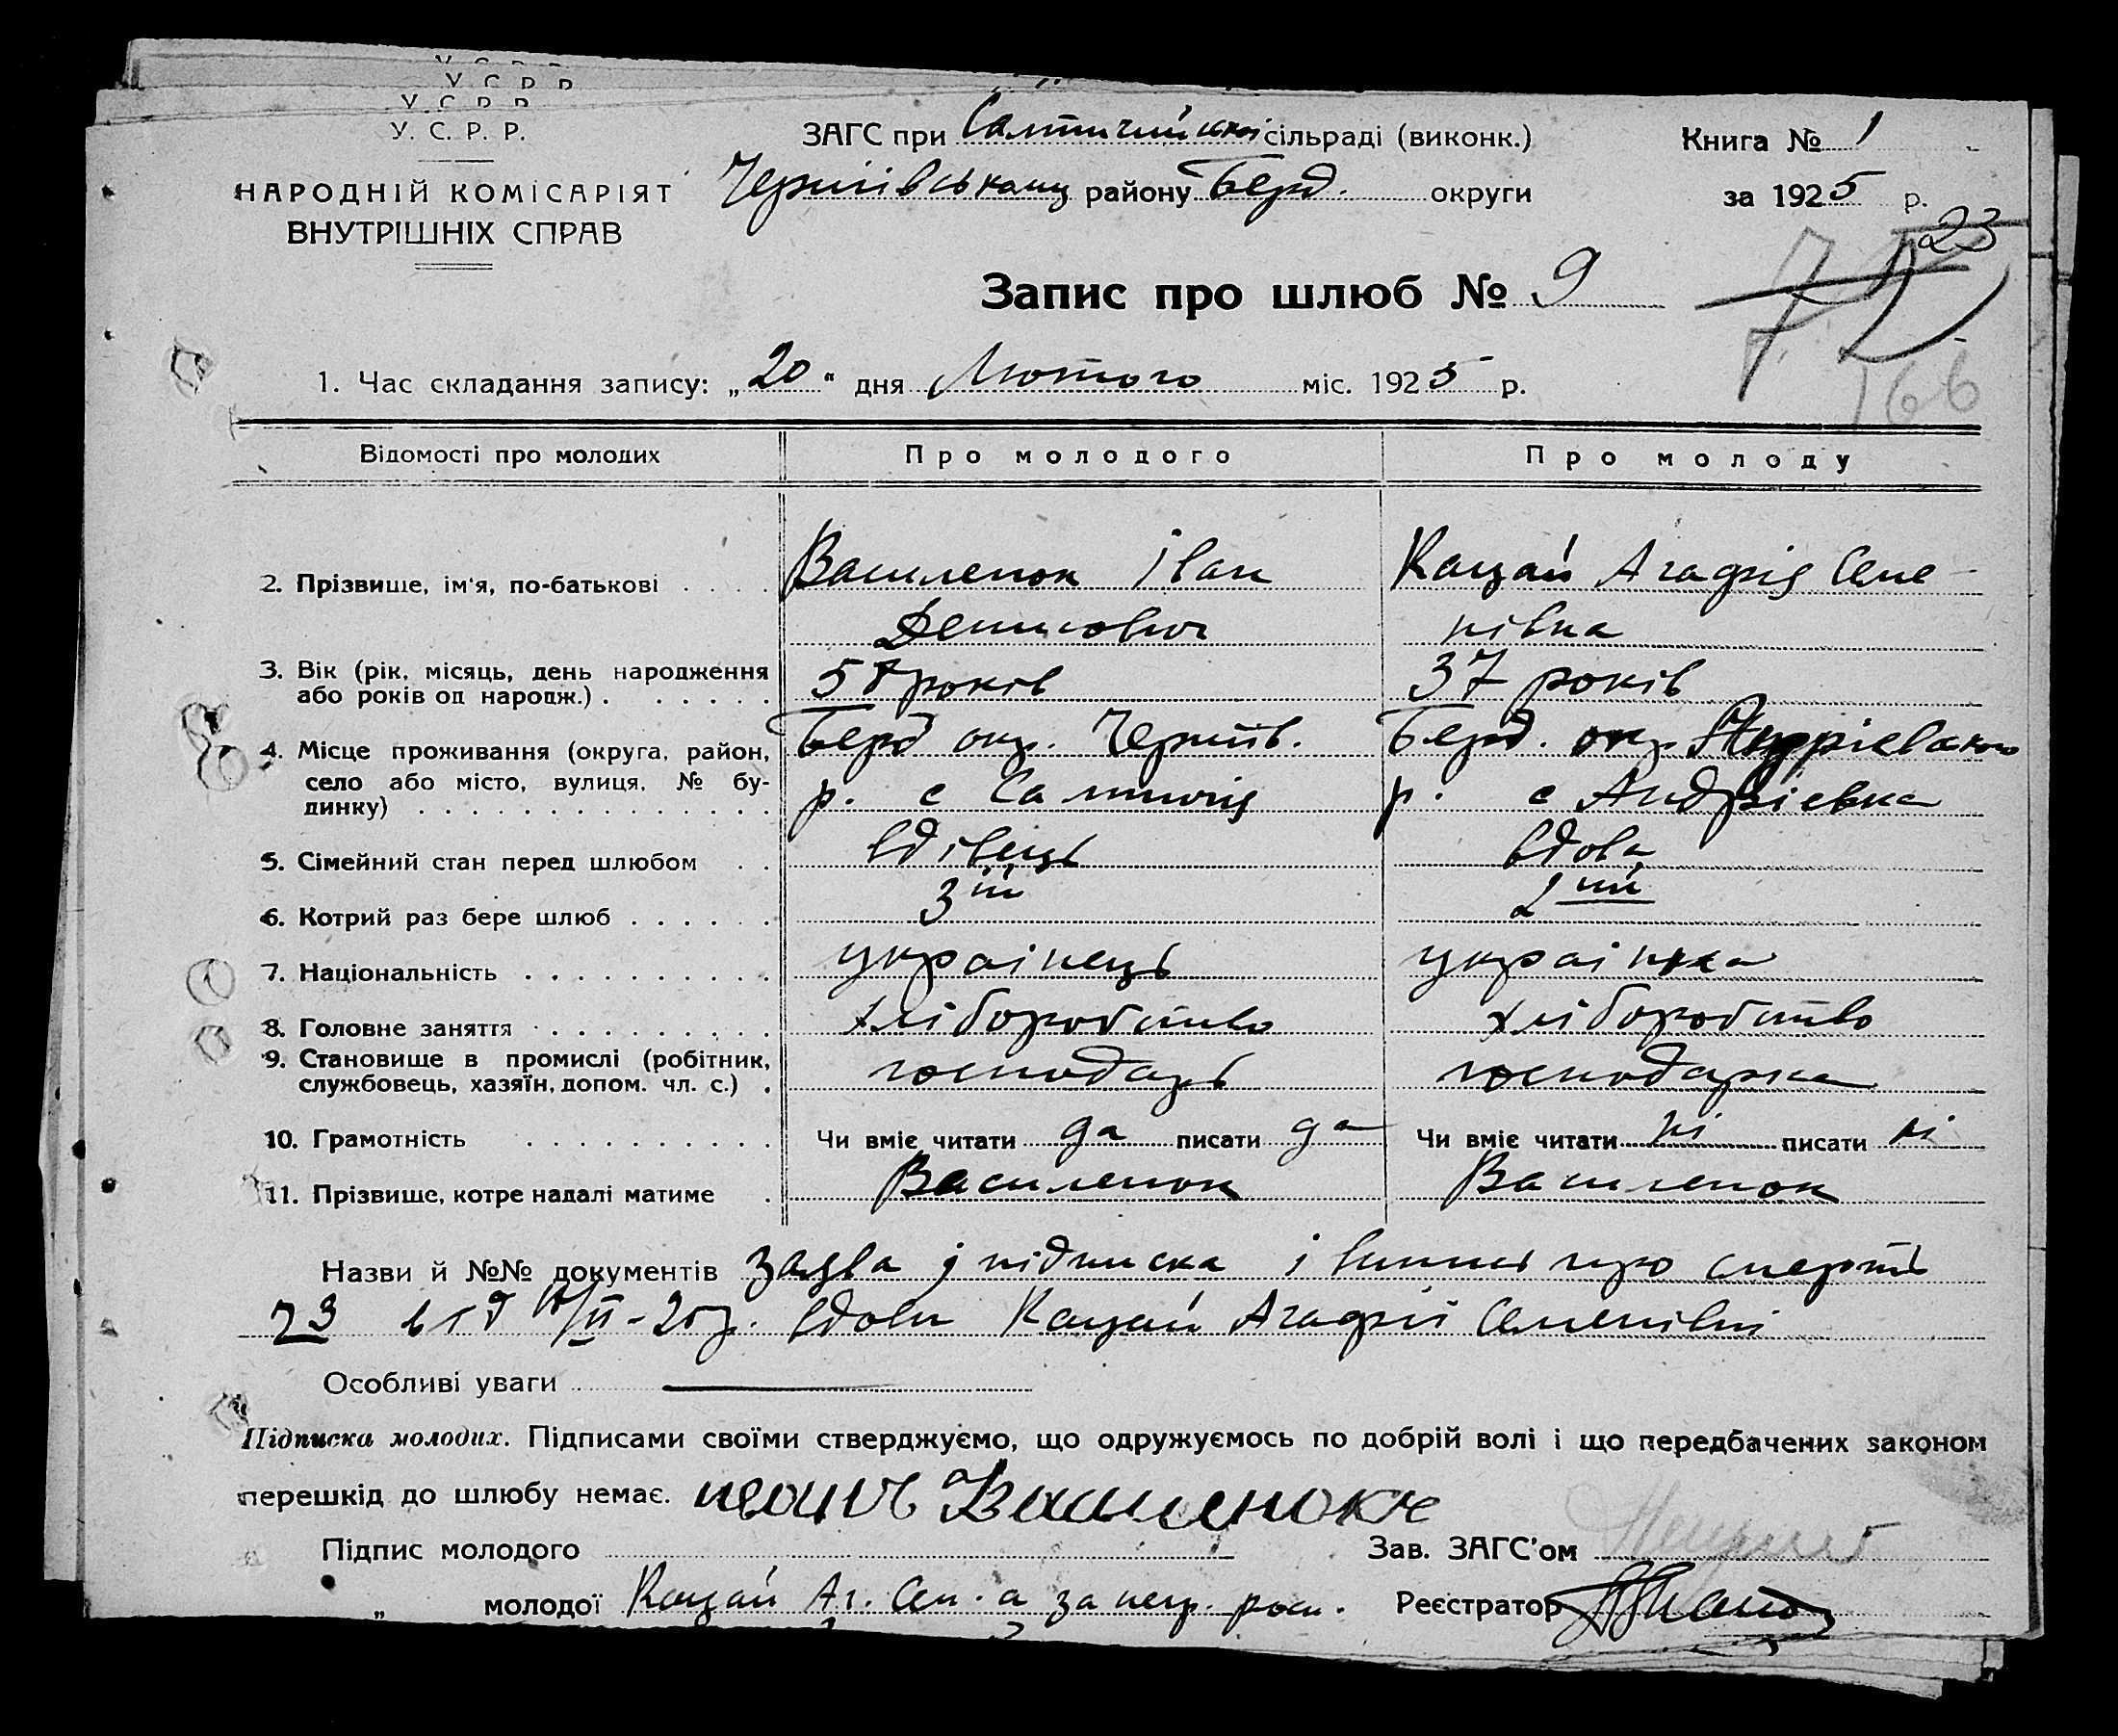 У. С. Р. Р.
У. С. Р. Р.
У. С. Р. Р.
НАРОДНІЙ КОМІСАРІЯТ
ВНУТРІШНІХ СПРАВ
ЗАГС при Салтичийській сільраді (виконк.)
Чернігівському району Берд. округи
Книга № 1
за 1925 р.
23
Запис про шлюб № 9
72
166
1. Час складання запису: „20“ дня Лютого міс. 1925 р.
Відомості про молодих Про молодого Про молоду
2. Прізвище, ім'я, по-батькові Василенок Іван Кацай Агафія Семе-
Денисович нівна
3. Вік (рік, місяць, день народження
або років од народж.) 58 років 37 років
4. Місце проживання (округа, район, Берд окр. Чернігів. Берд. окр. Андрієвского
село або місто, вулиця, № бу-
динку) р. с Салтичія р. с Андрієвка
5. Сімейний стан перед шлюбом вдівець вдова
6. Котрий раз бере шлюб 3ій 2ий
7. Національність українець українка
8. Головне заняття хліборобство хліборобство
9. Становище в промислі (робітник,
службовець, хазяїн, допом. чл. с.) господарь господарка
10. Грамотність Чи вміє читати да писати да Чи вміє читати ні писати ні
11. Прізвище, котре надалі матиме Василенок Василенок
Назви й №№ документів Заява, підписка і випись про смерть
23 від II-25р. вдови Кацай Агафії Семенівни
Особливі уваги
Підписка молодих. Підписами своїми стверджуємо, що одружуємось по добрій волі і що передбачених законом
перешкід до шлюбу немає.
Василенок
Підпис молодого Зав. ЗАГС'ом
„ молодої Кацай Аг. Сем. а за непр. росп. Реєстратор